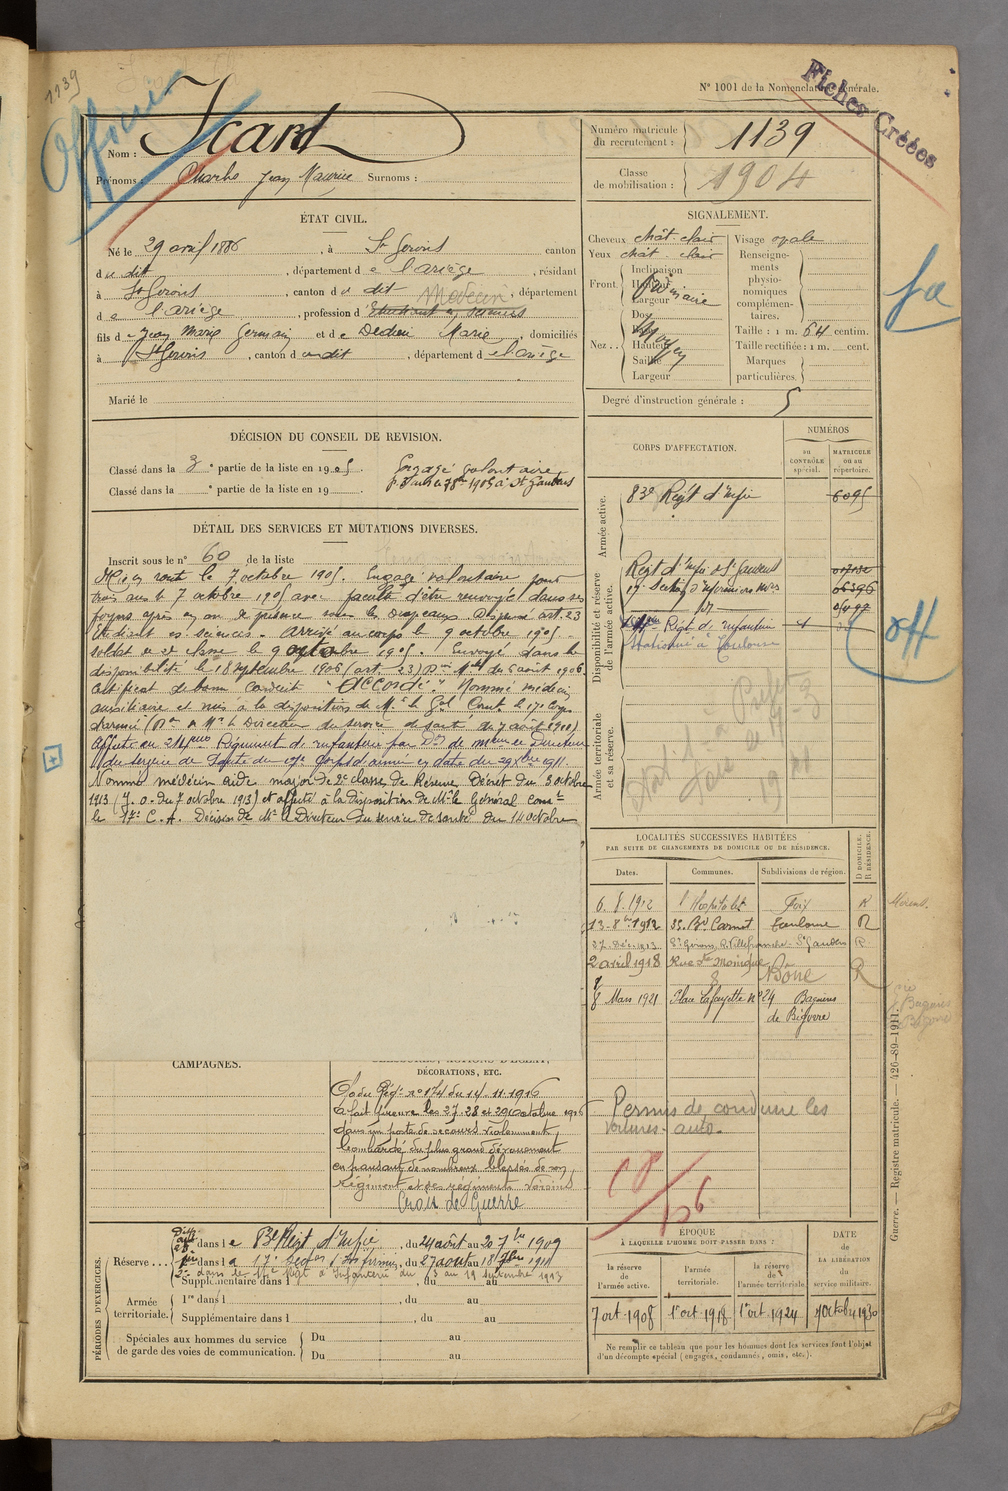 1139
Officier
N° 1001 de la Nomenclature générale.
Fiches Créées
Nom : Icart
Prénoms : Charles Jean Maurice Surnoms :
Numéro matricule du recrutement : 1139
Classe de mobilisation : 1904
ÉTAT CIVIL.
Né le 29 avril 1886, à St Girons canton
du dit, département de l'ariège, résidant
à St Girons, canton du dit, département
Médecin
de l'ariège, profession d'Etudiant es sciences
fils de Jean Marie Germain et de Dedieu Marie, domiciliés
à St Girons, canton du dit, département de l'ariège
Marié le
SIGNALEMENT.
Cheveux chât. clair Visage ovale
Yeux chât. clair Renseignements physionomiques complémentaires.
Front. Inclinaison Hauteur Largeur
Nez .. Dos Base Hauteur Saillie Largeur
Moyen
Taille : 1 m. 64 centim.
Taille rectifiée : 1 m. cent.
Marques particulières.
Degré d'instruction générale : 5
DÉCISION DU CONSEIL DE REVISION.
Classé dans la 3e partie de la liste en 1905. Engagé volontaire
Classé dans la e partie de la liste en 19
DÉTAIL DES SERVICES ET MUTATIONS DIVERSES.
Inscrit sous le n° 60 de la liste
Mis en route le 7 octobre 1905. Engagé volontaire pour
trois ans le 7 octobre 1905 avec faculté d'être renvoyé dans ses
foyers après un an de présence sous les drapeaux Dispensé art. 23
Etudiant es sciences. Arrivé au corps le 9 octobre 1905.
soldat de 2e classe le 9 octobre 1905. Envoyé dans la
disponibilité le 18 septembre 1906 (art. 23) du 6 août 1906
Certificat de bonne conduite "Accordé". Nommé médecin
auxiliaire et mis à la disposition de Mr le Gal Comt le 17e Corps
d'armée (Don de Mr le Directeur du service de santé du 7 août 1908)
Affecté au Régiment d'infanterie par Don de Mr le Directeur
du service de Santé du 17e Corps d'armée en date du 29 Xbre 1911.
Nommé médecin aide major de 2e classe de Réserve Décret du 3 octobre
1913 (J. o. du 7 octobre 1913) et affecté à la disposition de Mr le Général comt
le 17e C. A. Décision de Mr le Directeur du service de santé du 14 octobre
CORPS D'AFFECTATION.
NUMÉROS
au CONTRÔLE spécial.
MATRICULE ou au répertoire.
Armée active.
83e Régt d'Infie 6095
Disponibilité et réserve de l'armée active.
Régt d'Infie de St Gaudens
17e Section d'Infirmiers Mres
Régt d'infanterie
stationné à Toulouse
Armée territoriale et sa réserve.
off
LOCALITÉS SUCCESSIVES HABITÉES
PAR SUITE DE CHANGEMENTS DE DOMICILE OU DE RÉSIDENCE.
Dates. Communes. Subdivisions de région. D DOMICILE. R RÉSIDENCE.
6. 8. 1912 l'Hospitalet Foix R
13-8bre 1912 35. Bd Carnot Toulouse R
27. Déc. 1913 St Girons, R. Villefranche - St Gaudens R
2 avril 1918 Rue Ste Monique 8 Bône R
8 Mars 1921 Place Lafayette n° 24 Bagnères de Bigorre
Permis de conduire les
voitures-auto.
CAMPAGNES.
DÉCORATIONS, ETC.
O. du Régt n° 174 du 14-11-1916
a fait preuve les 27. 28 et 29 octobre 1916
dans un poste de secours violemment
bombardé du plus grand dévouement
en pansant de nombreux blessés de son
régiment et des régiments voisins
Croix de Guerre
PÉRIODES D'EXERCICES.
Réserve ... dans le 83e Régt d'Infie, du 24 août au 20 7bre 1909
dans la 17e Secton d'Infirmiers, du 27 août au 18 7bre 1911
Supplémentaire dans l , du au
Armée territoriale. 1re dans l , du au
Supplémentaire dans l , du au
Spéciales aux hommes du service de garde des voies de communication. Du au
Du au
ÉPOQUE
À LAQUELLE L'HOMME DOIT PASSER DANS :
la réserve de l'armée active. l'armée territoriale. la réserve de l'armée territoriale.
DATE de LA LIBÉRATION du service militaire.
7 oct. 1908 1er oct. 1918 1er oct. 1924 7 Octobre 1930
Ne remplir ce tableau que pour les hommes dont les services font l'objet
d'un décompte spécial (engagés, condamnés, omis, etc.).
Guerre. — Registre matricule. — 426-89-1911.